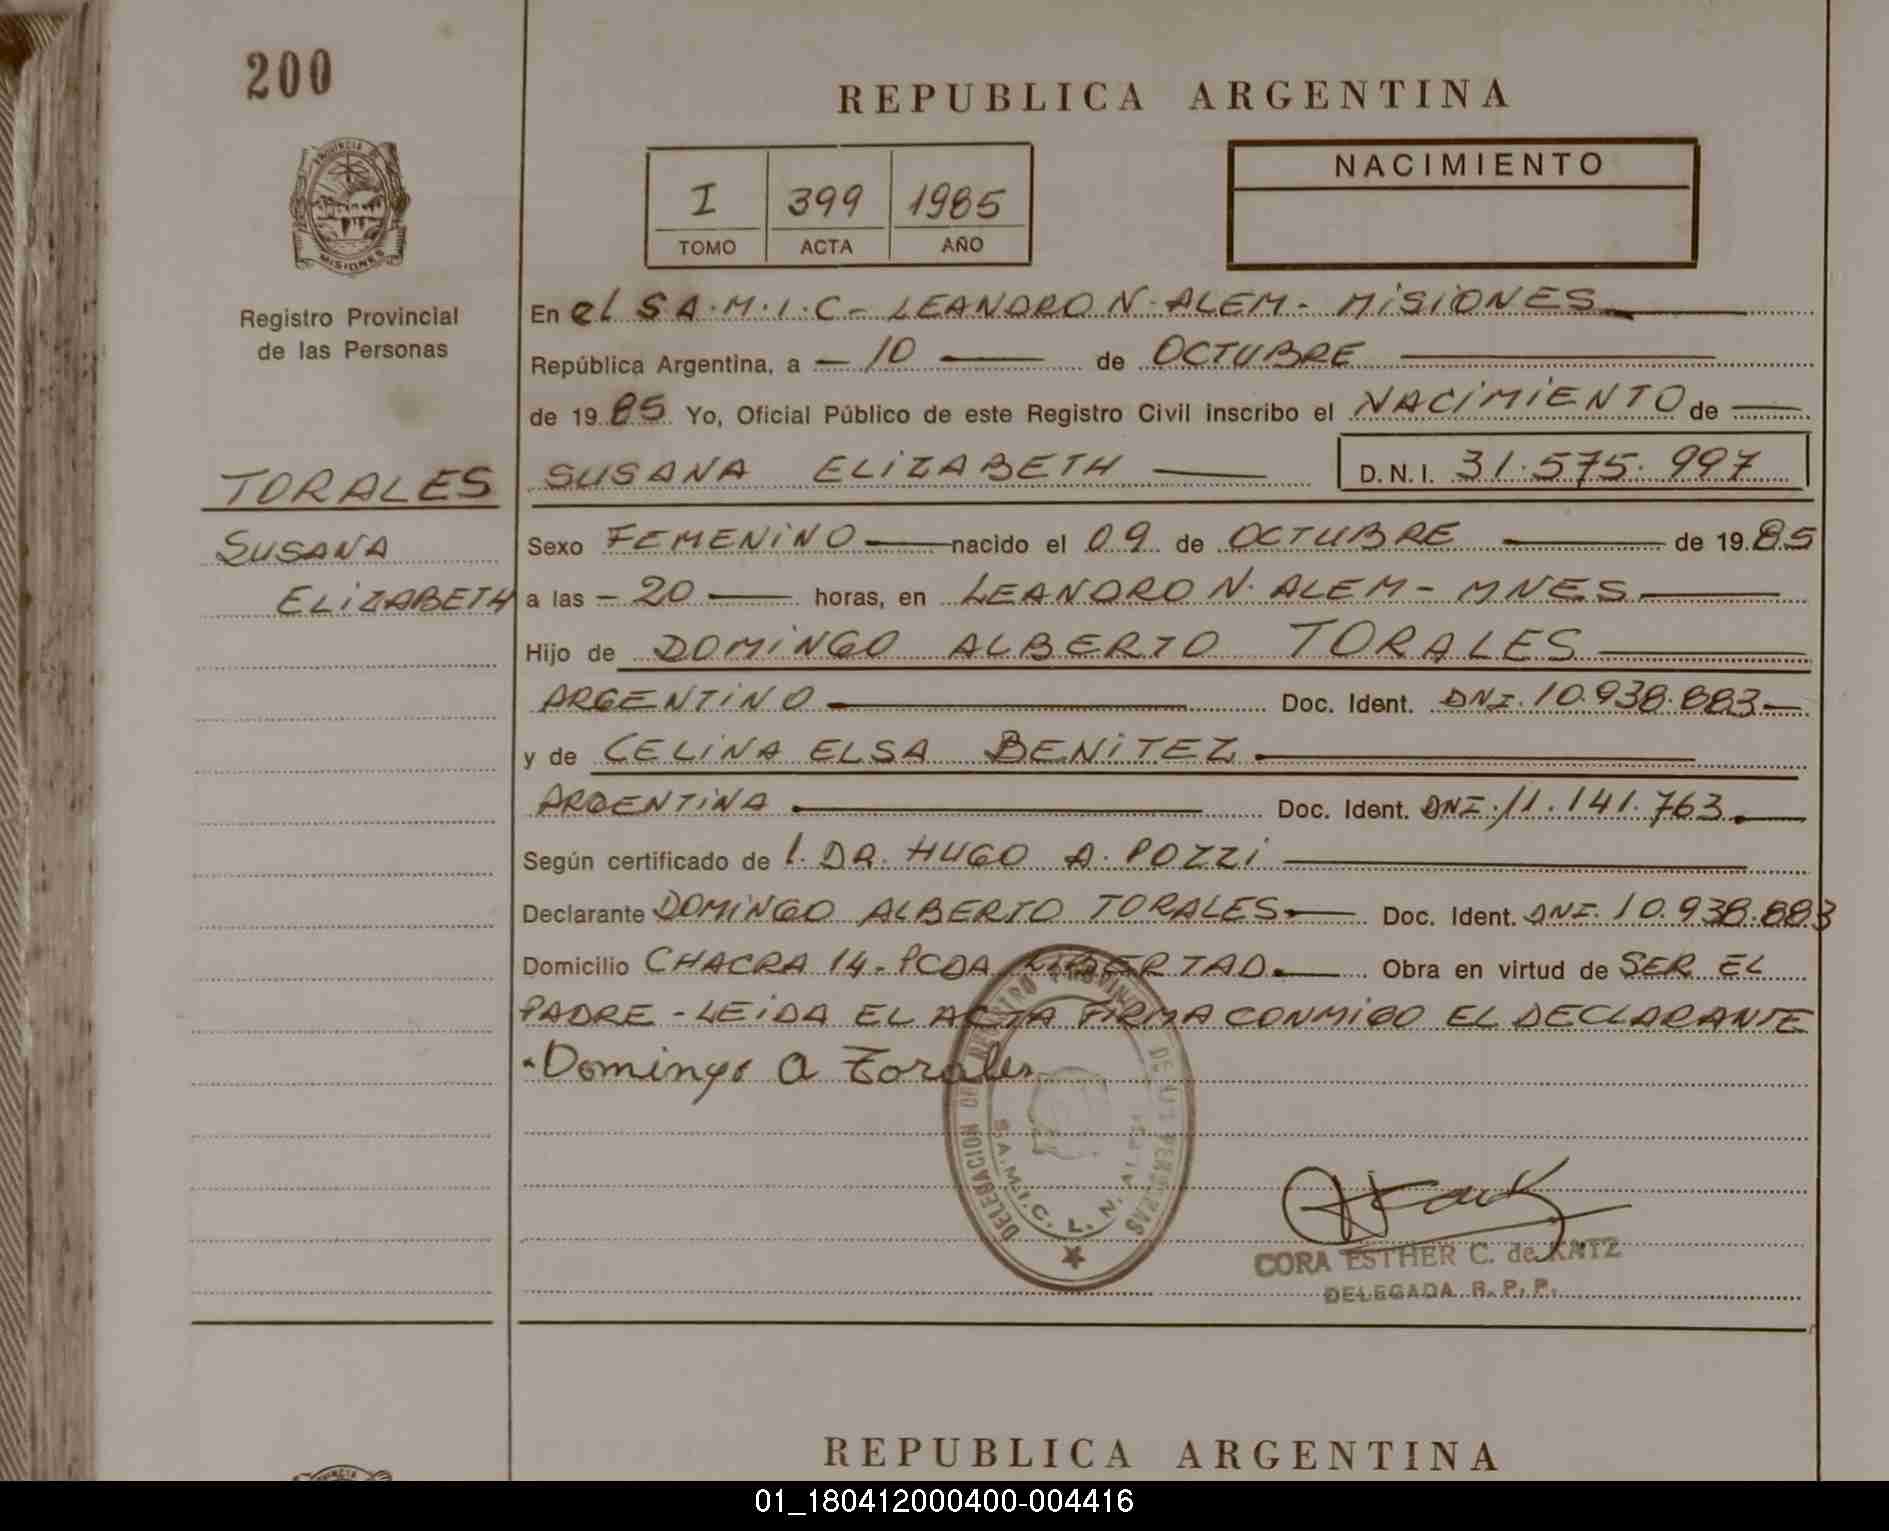 200
REPUBLICA ARGENTINA
PROVINCIA DE
MISIONES
I 399 1985
TOMO ACTA AÑO
NACIMIENTO
Registro Provincial
de las Personas
TORALES
SUSANA
ELIZABETH
En el S A.M.I.C - LEANDRO N. ALEM - MISIONES
República Argentina, a - 10 de OCTUBRE
de 1985 Yo, Oficial Público de este Registro Civil inscribo el NACIMIENTO de
SUSANA ELIZABETH D.N.I. 31.575.997
Sexo FEMENINO nacido el 09 de OCTUBRE de 1985
a las - 20 horas, en LEANDRO N. ALEM - MNES
Hijo de DOMINGO ALBERTO TORALES
ARGENTINO Doc. Ident. DNI. 10.938.883
y de CELINA ELSA BENITEZ
ARGENTINA Doc. Ident. DNI. 11.141.763
Según certificado de l. DR. HUGO A. POZZI
Declarante DOMINGO ALBERTO TORALES Doc. Ident. DNI. 10.938.883
Domicilio CHACRA 14 - PCDA LIBERTAD. Obra en virtud de SER EL
PADRE - LEIDA EL ACTA FIRMA CONMIGO EL DECLARANTE
Domingo A Torales
DELEGACION DEL REGISTRO PROVINC. DE LAS PERSONAS
S.A.M.I.C. L. N. ALEM
CORA ESTHER C. de KATZ
DELEGADA R. P. P.
REPUBLICA ARGENTINA
01_180412000400-004416